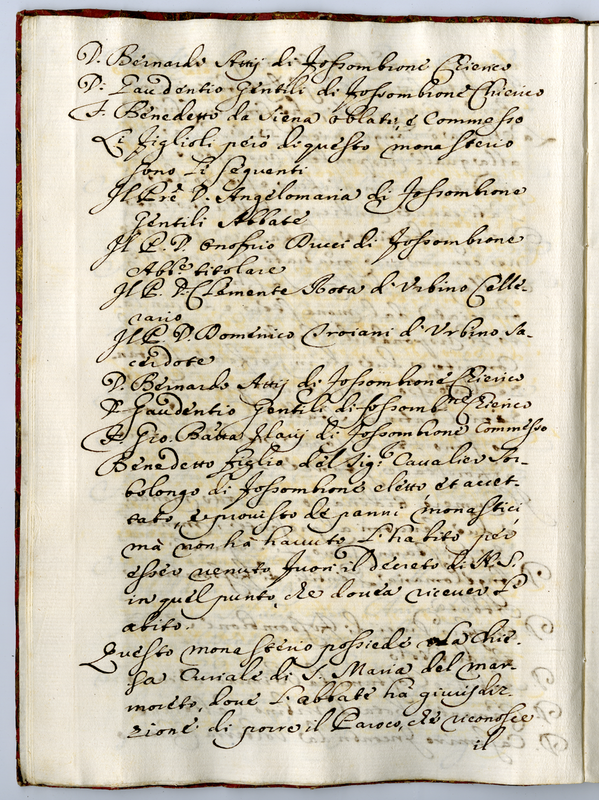 D. Bernardo Attij di Fossombrone Chierico
D. Gaudentio Gentili di Fossombrone Chierico
F. Benedetto da Siena oblato, e Commesso
Li figlioli però di questo monasterio
sono li seguenti
Il Pre D. Angelomaria di Fossombrone
Gentili Abbate
Il P. D. Onofrio Ducci di Fossombrone
Abb.e titolare
Il P. D. Clemente Rota di Urbino Celle-
rario
Il P. D. Domenico Troiani di Urbino Sa-
cerdote
D. Bernardo Attij di Fossombrone Chierico
D. Gaudentio Gentili di fossomb.ne Chierico
F. Gio. Batta Flavij di Fossombrone Commesso
Benedetto figlio del Sig.r Cavalier Tor-
bolongo di Fossombrone eletto et accet-
tato, e provisto de panni monastici,
mà non hà havuto l'habito per
esser venuto fuori il decreto di N. S.
in quel punto, che dovea ricever l'
abito.
Questo monasterio possiede la Chie-
sa Curiale di S. Maria del mar-
moreto, dove l'abbate hà giurisdi-
zione di porre il Paroco, che riconosce
il